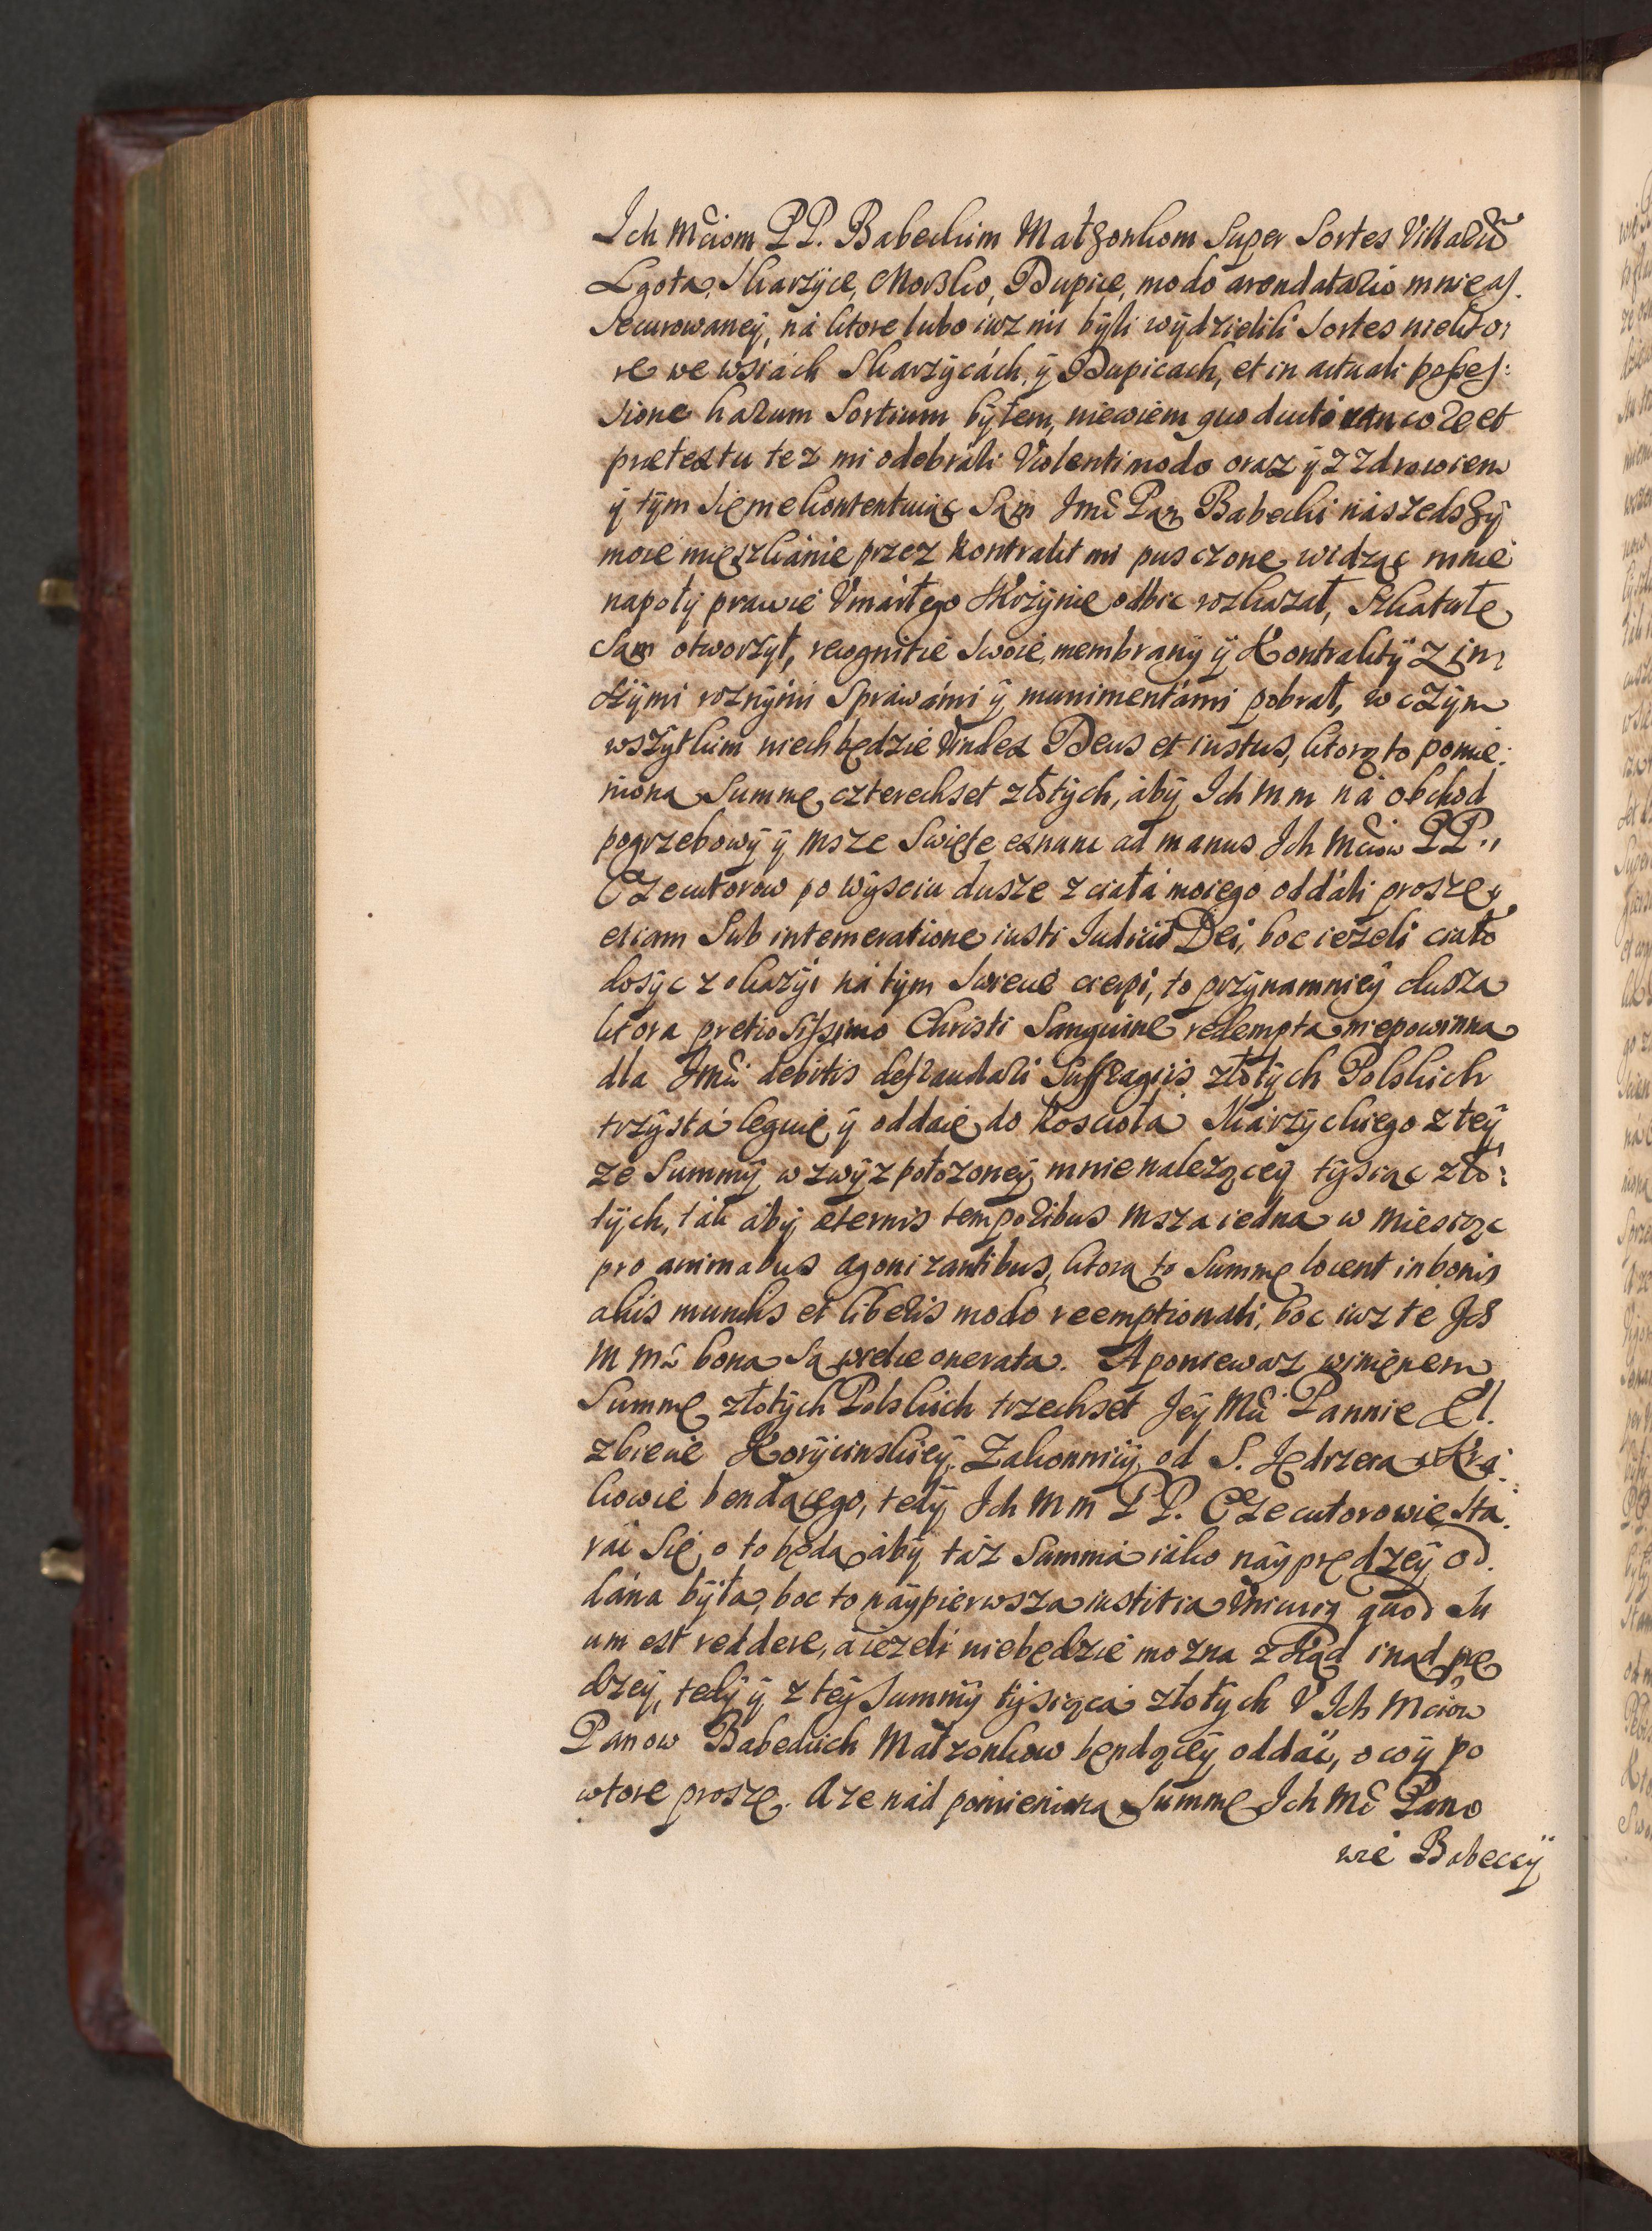 Ich Mciom PP. Babeckim Małzonkom Super Sortes Villarũ
Lgota, Skarzyce, Morsko, Dupice, modo arendatario mnie as.
Securowaneÿ, ná ktore lubo iuz mi bÿli wÿdzielili Sortes niekto:
re we wsiách Skarzÿcách, ÿ Dupicach, et in actuali posses:
sione harum Sortium bÿłem, niewiem quo ducti rancore et
prætextu tez mi odebráli Violenti modo oraz ÿ z zdrowiem
ÿ tÿm się niekontentuiąc Sąm Jmć Pan Babecki nászedszÿ
moie mięszkánie przez Kontrakt mi pusczone widząc mnie
napołÿ prawie Vmárłego Skrzÿnie odbic rozkazał, Szkatułę
Sąm otworzÿł, recognitie Swoie, membranÿ ÿ Kontraktÿ z in:
szÿmi roznÿmi Spráwámi ÿ munimentámi pobrał, w czÿm
wszÿtkim niech będzie Vindex Deus et iustus, ktorą to pomie:
niona Summę czterechset złotÿch, ábÿ Ich Mm ná obchod
pogrzebowÿ ÿ Msze Swięte exnunc ad manus Ich Mciow PP.
Exekutorow po wÿsciu dusze z ciałá moiego oddáli proszę
etiam Sub intemeratione iusti Iudicii Dei, boc iezeli ciało
dosÿc z okazÿi ná tÿm Swiecie cierpi, to przÿnamnieÿ dusza
ktora pretiosissimo Christi Sanguine redempta niepowinna
dla Jmći debitis defraudari Suffragiis złotÿch Polskich
trzÿstá leguię ÿ oddaię do koscioła Skárzÿckiego z teÿ
ze Summÿ wzwÿz połozoneÿ mnie nalezącey tÿsiąc zło:
tÿch, ták ábÿ æternis temporibus Msza iedna w miesiąc
pro animabus agonizantibus, ktorą to Summę locent in bonis
aliis mundis et liberis modo reemptionali, boc iuz te Ich
M Mć bona Są wielce onerata. A poniewaz winięnem
Summę złotÿch Polskich trzechset Jeÿ Mći Pannie El.
zbiecie Korÿcinskieÿ Zakonnicÿ od S. Jędrzeia w Kra:
kowie bendącego, tedÿ Ich Mm PP. Exekutorowie Sta.
rác Się o to będą ábÿ táz Summá iáko náÿprędzeÿ od.
dána bÿła, boc to náÿpierwsza iustitia Vnicuiq quod Su
um est reddere, á iezeli niebędzie mozna zkąd inąd prę
dzeÿ, tedÿ ÿ z teÿ Summÿ tÿsiąca złotÿch V Ich Mciow
Panow Babeckich Małzonkow bendąceÿ oddác, o coÿ po
wtore proszę. A ze nád pomieniona Summę Ich Mć Pano
wie Babeccÿ